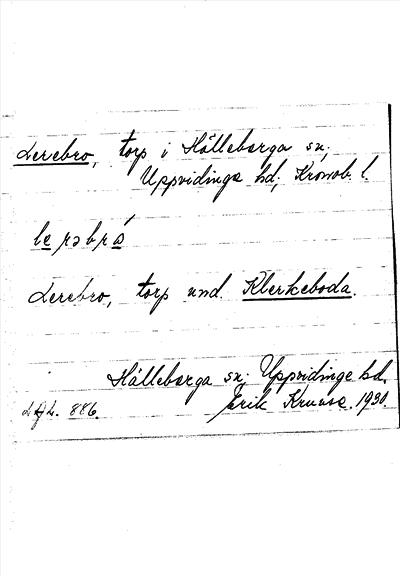 Lerebro, torp i Hälleberga sn,
Uppvidinge hd, Kronob. l.
lerəbró
Lerebro, torp und. Klerkeboda.
Hälleberga sn, Uppvidinge hd.
886. Erik 1930.